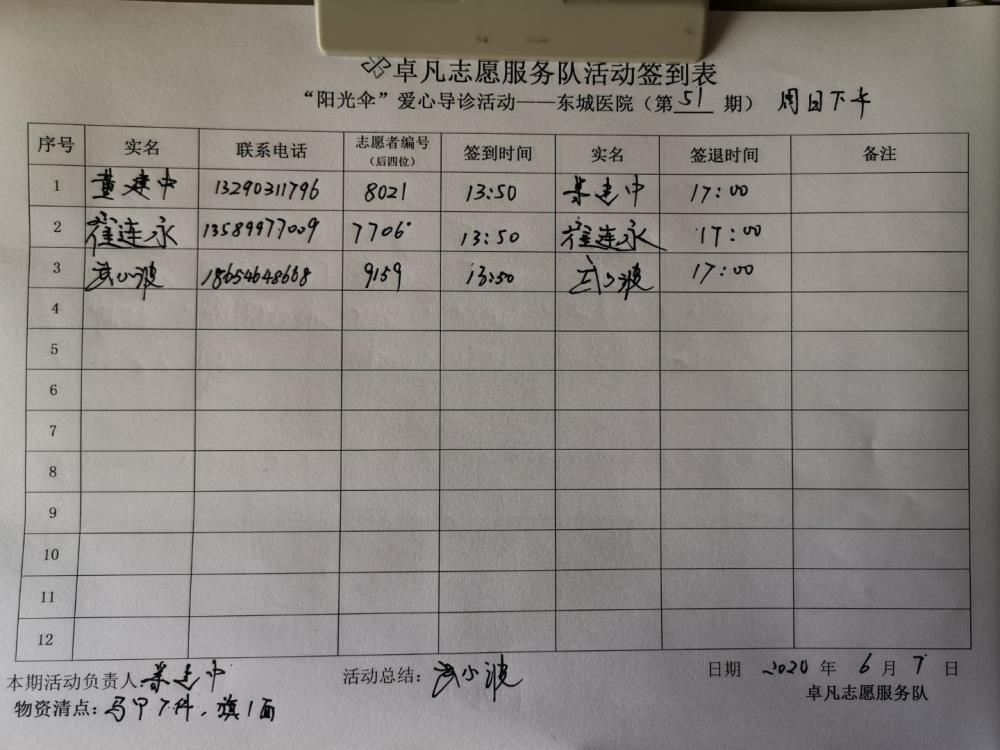 卓凡志愿服务队活动签到表
“阳光伞”爱心导诊活动——东城医院（第 51 期） 周日下午
序号 实名 联系电话 志愿者编号（后四位） 签到时间 实名 签退时间 备注
1 建中 13290311796 8021 13:50 建中 17:00
2 崔连永 13589977009 7706 13:50 崔连永 17:00
3 武小波 18654648668 9159 13:50 武小波 17:00
4
5
6
7
8
9
10
11
12
本期活动负责人 建中 活动总结：武小波 日期 2020 年 6 月 7 日
物资清点：马甲7件，旗1面 卓凡志愿服务队